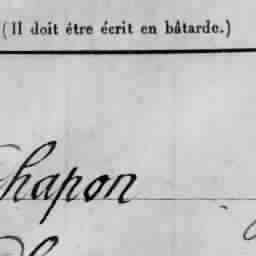 (Il doit être écrit en bâtarde.)
Chapon